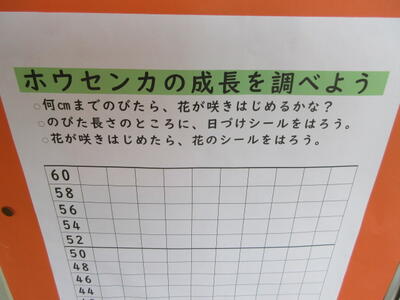 ホウセンカの成長を調べよう
○何㎝までのびたら、花が咲きはじめるかな？
○のびた長さのところに、日づけシールをはろう。
○花が咲きはじめたら、花のシールをはろう。
60
58
56
54
52
50
48
46
44